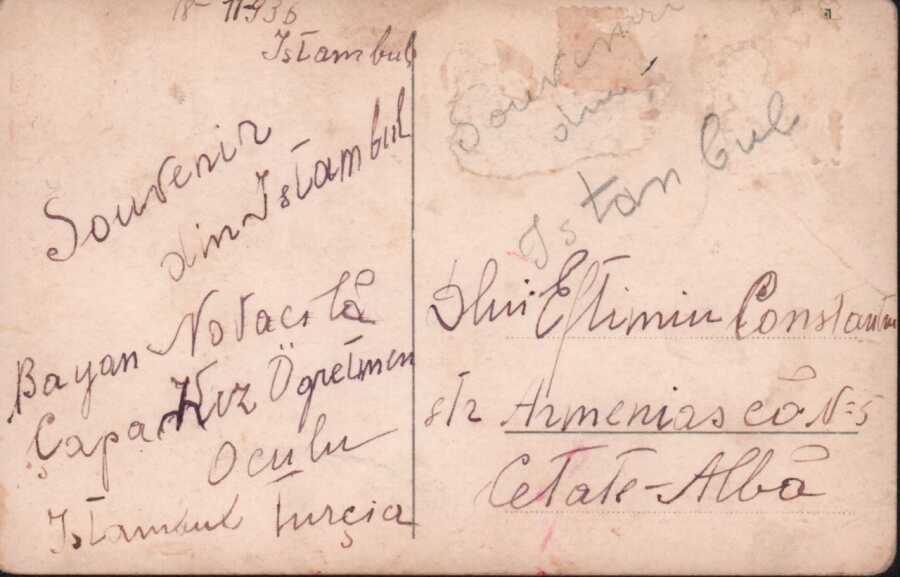 18-11-936
Istambul
Souvenir
din Istambul
Bayan Novacilă
Çapa Kız Ögretmen
Oculu
Istambul Turçia
Souvenir
din
Istanbul
Dlui Eftimiu Constantin
str Armenească N=5
Cetate-Albă